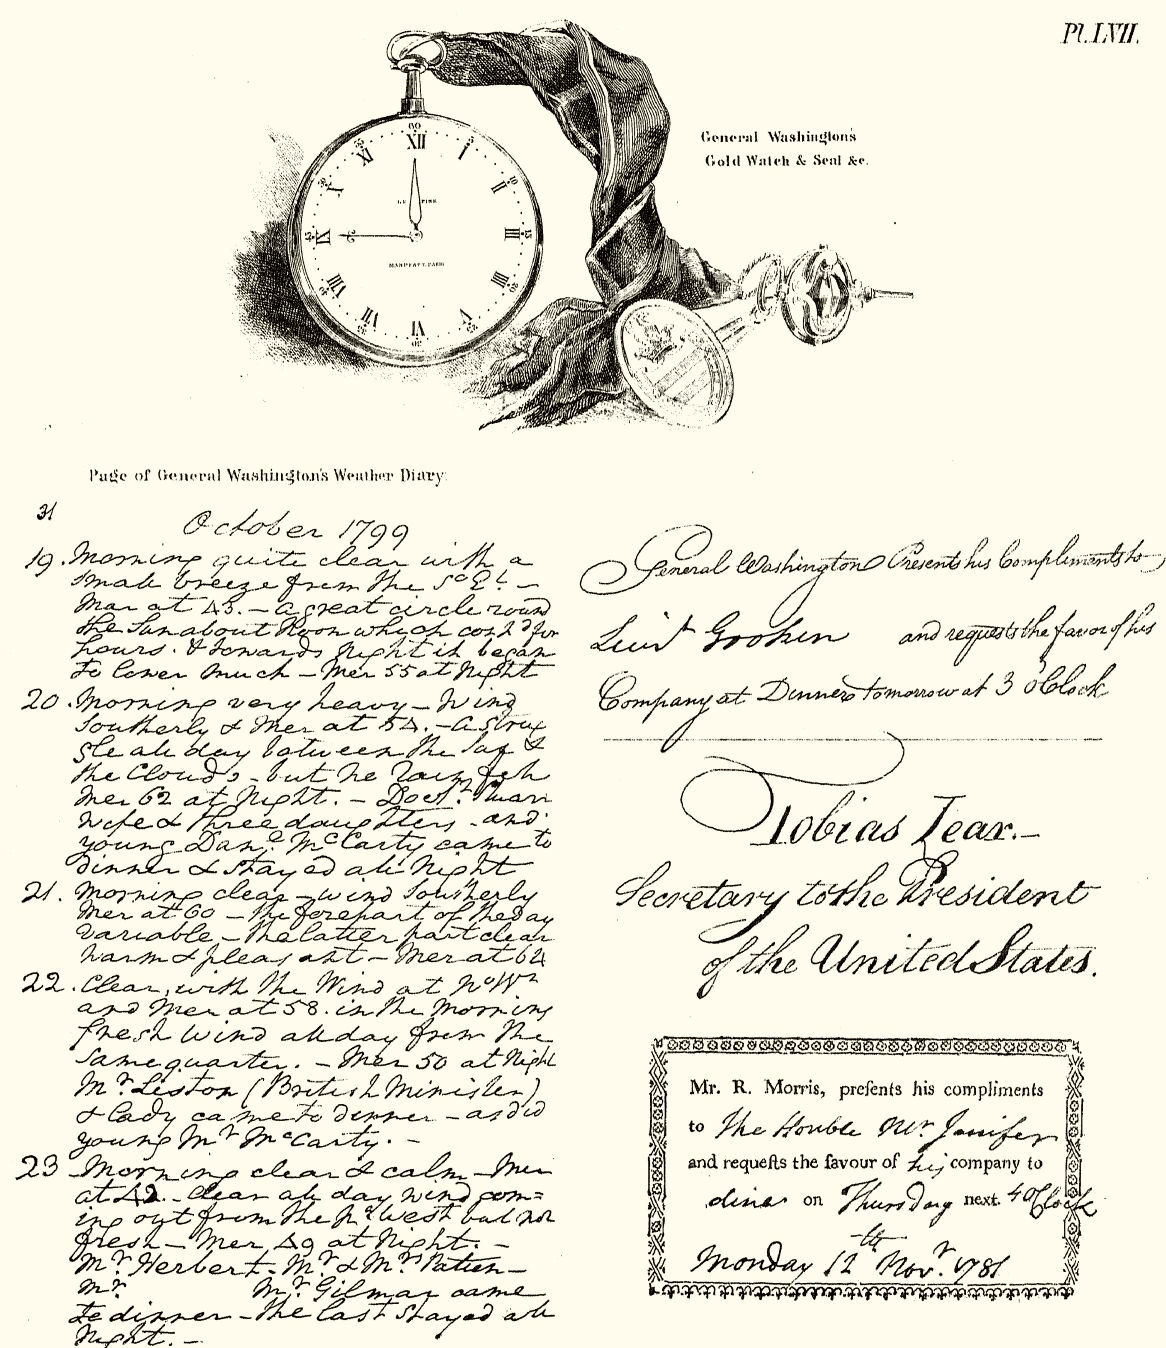 Pl. LVII.
General Washington's
Gold Watch & Seal &c.
60
XII
I
II
III
IV
V
VI
VII
VIII
IX
X
XI
Page of General Washington's Weather Diary.
31
October 1799
19. Morning quite clear with a
small breeze from the So Et. —
Mer at 43. — a great circle round
the Sun about Noon which contd for
hours. & towards Night it began
to lower much — Mer 55 at Night
20. Morning very heavy — Wind
Southerly & Mer at 54. — a Strug
gle all day between the Sun &
the Clouds — but no Rain fell
Mer 62 at Night. — Doctr.
wife & three daughters — and
young Danl. McCarty came to
dinner & stayed all Night
21. Morning clear — wind Southerly
Mer at 60 — the forepart of the day
variable — the latter part clear
warm & pleasant — Mer at 64
22. Clear, with the Wind at No Wt
and Mer at 58. in the Morning
fresh Wind all day from the
same quarter. — Mer 50 at Night
Mr. Liston (British Minister)
& Lady came to dinner — as did
young Mr McCarty. —
23 Morning clear & calm — Mer
at 42. — Clear all day wind com=
ing out from the No West but not
fresh — Mer 49 at Night. —
Mr. Herbert. Mr. & Mrs. Patten —
Mr. Mr. Gilmar came
to dinner — the last stayed all
Night. —
General Washington Presents his Compliments to
Lieut Gookin and requests the favor of his
Company at Dinner tomorrow at 3 o'Clock
Tobias Lear. —
Secretary to the President
of the United States.
Mr. R. Morris, presents his compliments
to The Honble Mr. Jenifer
and requests the favour of his company to
dine on Thursday next. 4 OClock
Monday 12th Novr. 1781